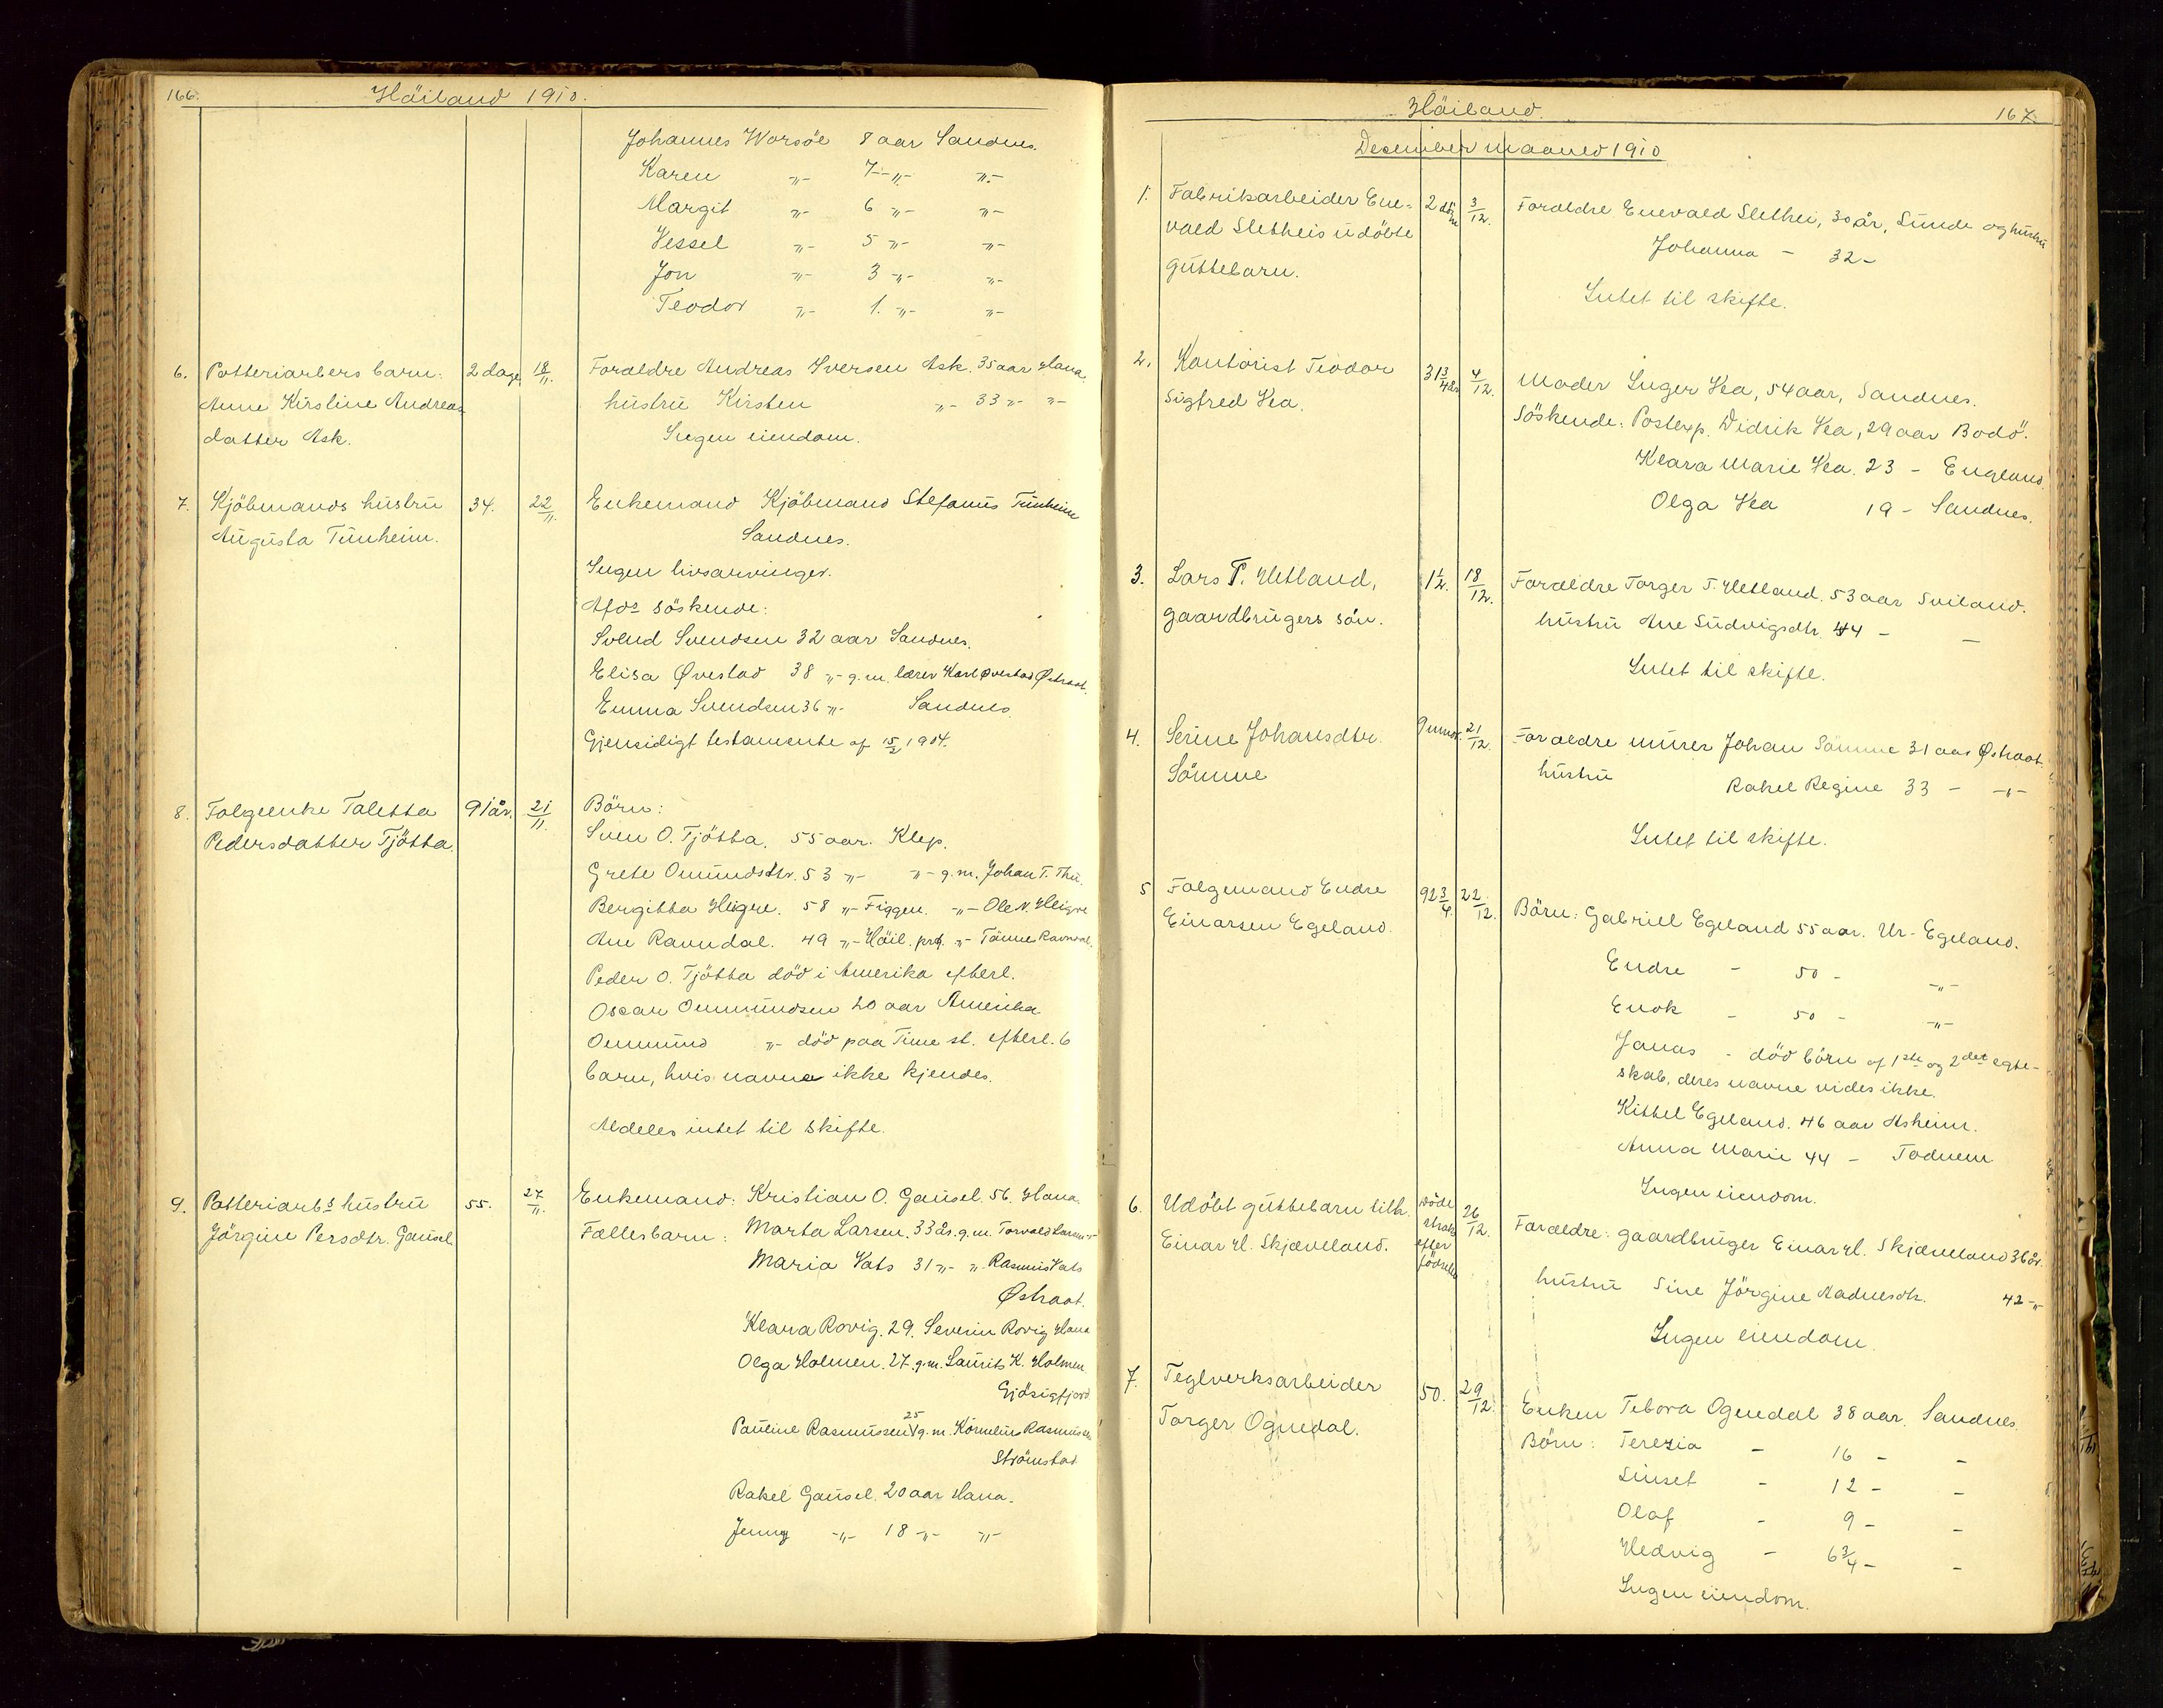 166.
Höiland 1910.
Johannes Worsöe 8 aar Sandnes.
Karen -„- 7-„- -„-
Margit -„- 6 -„- -„-
Vessel -„- 5 -„- -„-
Jon -„- 3 -„- -„-
Teodor -„- 1. -„- -„-
6. Potteriarbers barn: 2 dage 18/11. Forældre Andreas Iversen Ask. 35 aar Hana.
Anne Kirstine Andreas hustru Kirsten -„- 33 -„- -„-
datter Ask. Ingen eiendom.
7. Kjöbmands hustru 34. 22/11. Enkemand Kjöbmand Stefanus Tunheim
Augusta Tunheim. Sandnes.
Ingen livsarvinger.
Afds söskende:
Svend Svendsen 32 aar Sandnes.
Elisa Øvestad 38 -„- g.m. lærer Karl Øvestad Østraat.
Emma Svendsen 36 -„- Sandnes
Gjensidigt testamente af 15/2 1904.
8. Folgeenke Taletta 91 år. 21/11. Börn:
Pedersdatter Tjötta. Sven O. Tjötta. 55 aar. Klep.
Grete Omundsdtr. 53 -„- -„- g.m. Johan T. Thu.
Bergitta Heigre. 58 -„- Figgen. -„- Ole N. Heigre
Ane Ravndal. 49 -„- Höil. prg. -„- Tönne Ravndal.
Peder O. Tjötta död i Amerika efterl.
Oscar Ommundsen 20 aar Amerika
Ommund -„- död paa Time st. efterl. 6
barn, hvis navne ikke kjendes.
Aldeles intet til skifte.
9. Potteriarbs hustru 55. 27/11. Enkemand: Kristian O. Gausel. 56. Hana.
Jörgine Persdtr. Gausel. Fællesbarn: Marta Larsen. 33 år. g.m. Torvald Larsen -„-
Maria Vats 31 -„- -„- Rasmus Vats
Østraat.
Klara Rovig. 29. Severin Rovig Hana
Olga Holmen. 27. g.m. Laurits K. Holmen
Gjösigfjord
Pauline Rasmussen 25 g.m. Kornelius Rasmussen
Strömstad
Rakel Gausel. 20 aar Hana.
Jenny -„- 18 -„- -„-
Höiland.
167.
Desember maaned 1910
1. Fabrikarbeider Ene= 2 døgn 3/12. Forældre Enevald Slethei, 30 år, Sunde og hustru
vald Sletheis udöbte Johanna - 32 -
guttebarn. Intet til skifte.
2. Kontorist Teodor 31 3/4 år 4/12. Moder Inger Vea, 54 aar, Sandnes.
Sigfred Vea. Söskende: Postexp. Didrik Vea, 29 aar Bodö.
Klara Marie Vea. 23 - England.
Olga Vea 19 - Sandnes.
3. Lars T. Hetland, 1 1/2. 18/12. Forældre Torger T. Hetland. 53 aar Sviland.
gaardbrugers sön. hustru Ane Ludvigsdtr. 44 - -
Intet til skifte.
4. Serine Johansdtr. 9 mndr. 21/12. Forældre murer Johan Sömme 31 aar Østraat.
Sömme hustru Rakel Regine 33 - -„-
Intet til skifte.
5 Folgemand Endre 92 3/4. 22/12. Börn: Gabriel Egeland 55 aar. Ur-Egeland.
Einarsen Egeland. Endre - 50 - -„-
Enok - 50 - -„-
Jonas - död börn af 1ste og 2det egte-
skab, deres navne vides ikke.
Kittel Egeland. 46 aar Asheim.
Anna Marie 44 - Todnem
Ingen eiendom.
6. Udöbt guttebarn tilh. Döde 26/12. Forældre: gaardbruger Einar H. Skjæveland 36 år.
Einar H. Skjæveland. strax
efter
födselen
hustru Sine Jörgine Aadnesdtr. 42 -„-
Ingen eiendom.
7. Teglverksarbeider 50. 29/12. Enken Tebora Ognedal 38 aar. Sandnes.
Torger Ognedal. Börn: Teresia - 16 - -
- 12 - -
Olaf - 9 - -
Hedvig - 6 3/4 - -
Ingen eiendom.